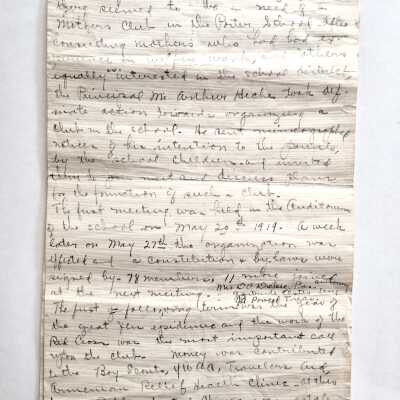 There seemed to be a need of a
Mothers Club in the Porter School. Also
connecting mothers who had had ex-
perience in welfare work, and others
equally interested in the school
the Principal Mr. Arthur took def-
inite action towards organizing a
club in the school. He sent mimeographed
notices of his intention to the parents,
by the school children and invited
them to and discuss plans
for the formation of such a club.
The first meeting was held in the Auditorium
of the school on May 20th 1919. A week
later on May 27th the organization was
effected and a constitution & by-laws were
signed by 78 members, 11 more joined
at the next meeting. Mrs
Powell Treas.
The first & following term was the year of
the great Flu epidemic and the work of the
Red Cross was the most important call
upon the club. Money was contributed
to the Boy Scouts, Travelers Aid
Armenian Relief, Health Clinic